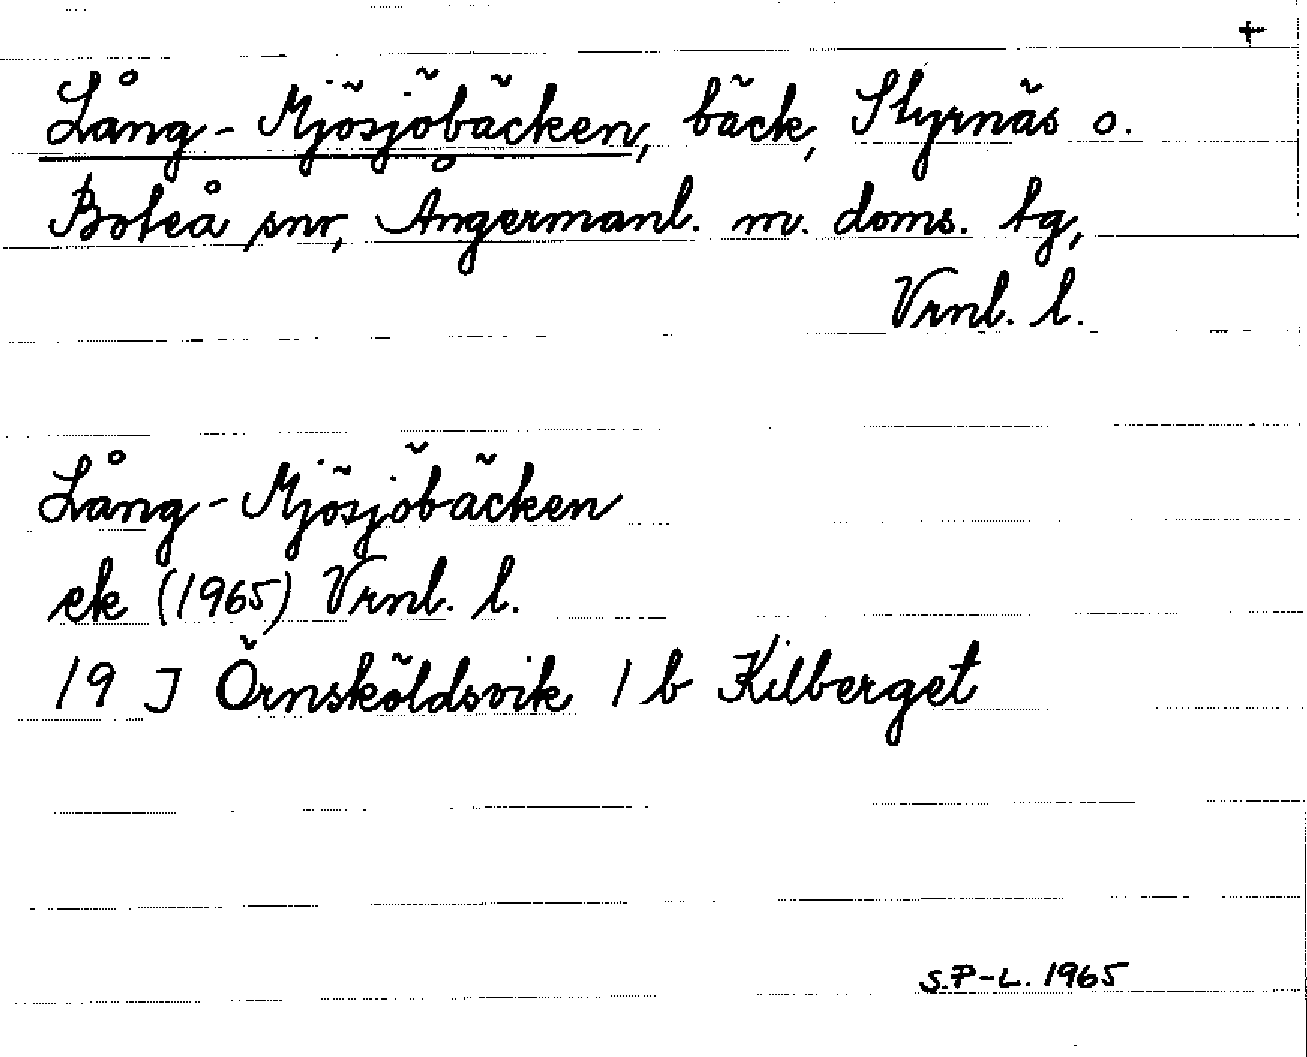 +
Lång-Mjösjöbäcken, bäck, Styrnäs o.
Boteå snr, Ångermanl. m. doms. tg,
Vrnl. l.
Lång-Mjösjöbäcken
ek (1965) Vrnl. l.
19 J Örnsköldsvik 1 b Kilberget
S.P-L. 1965